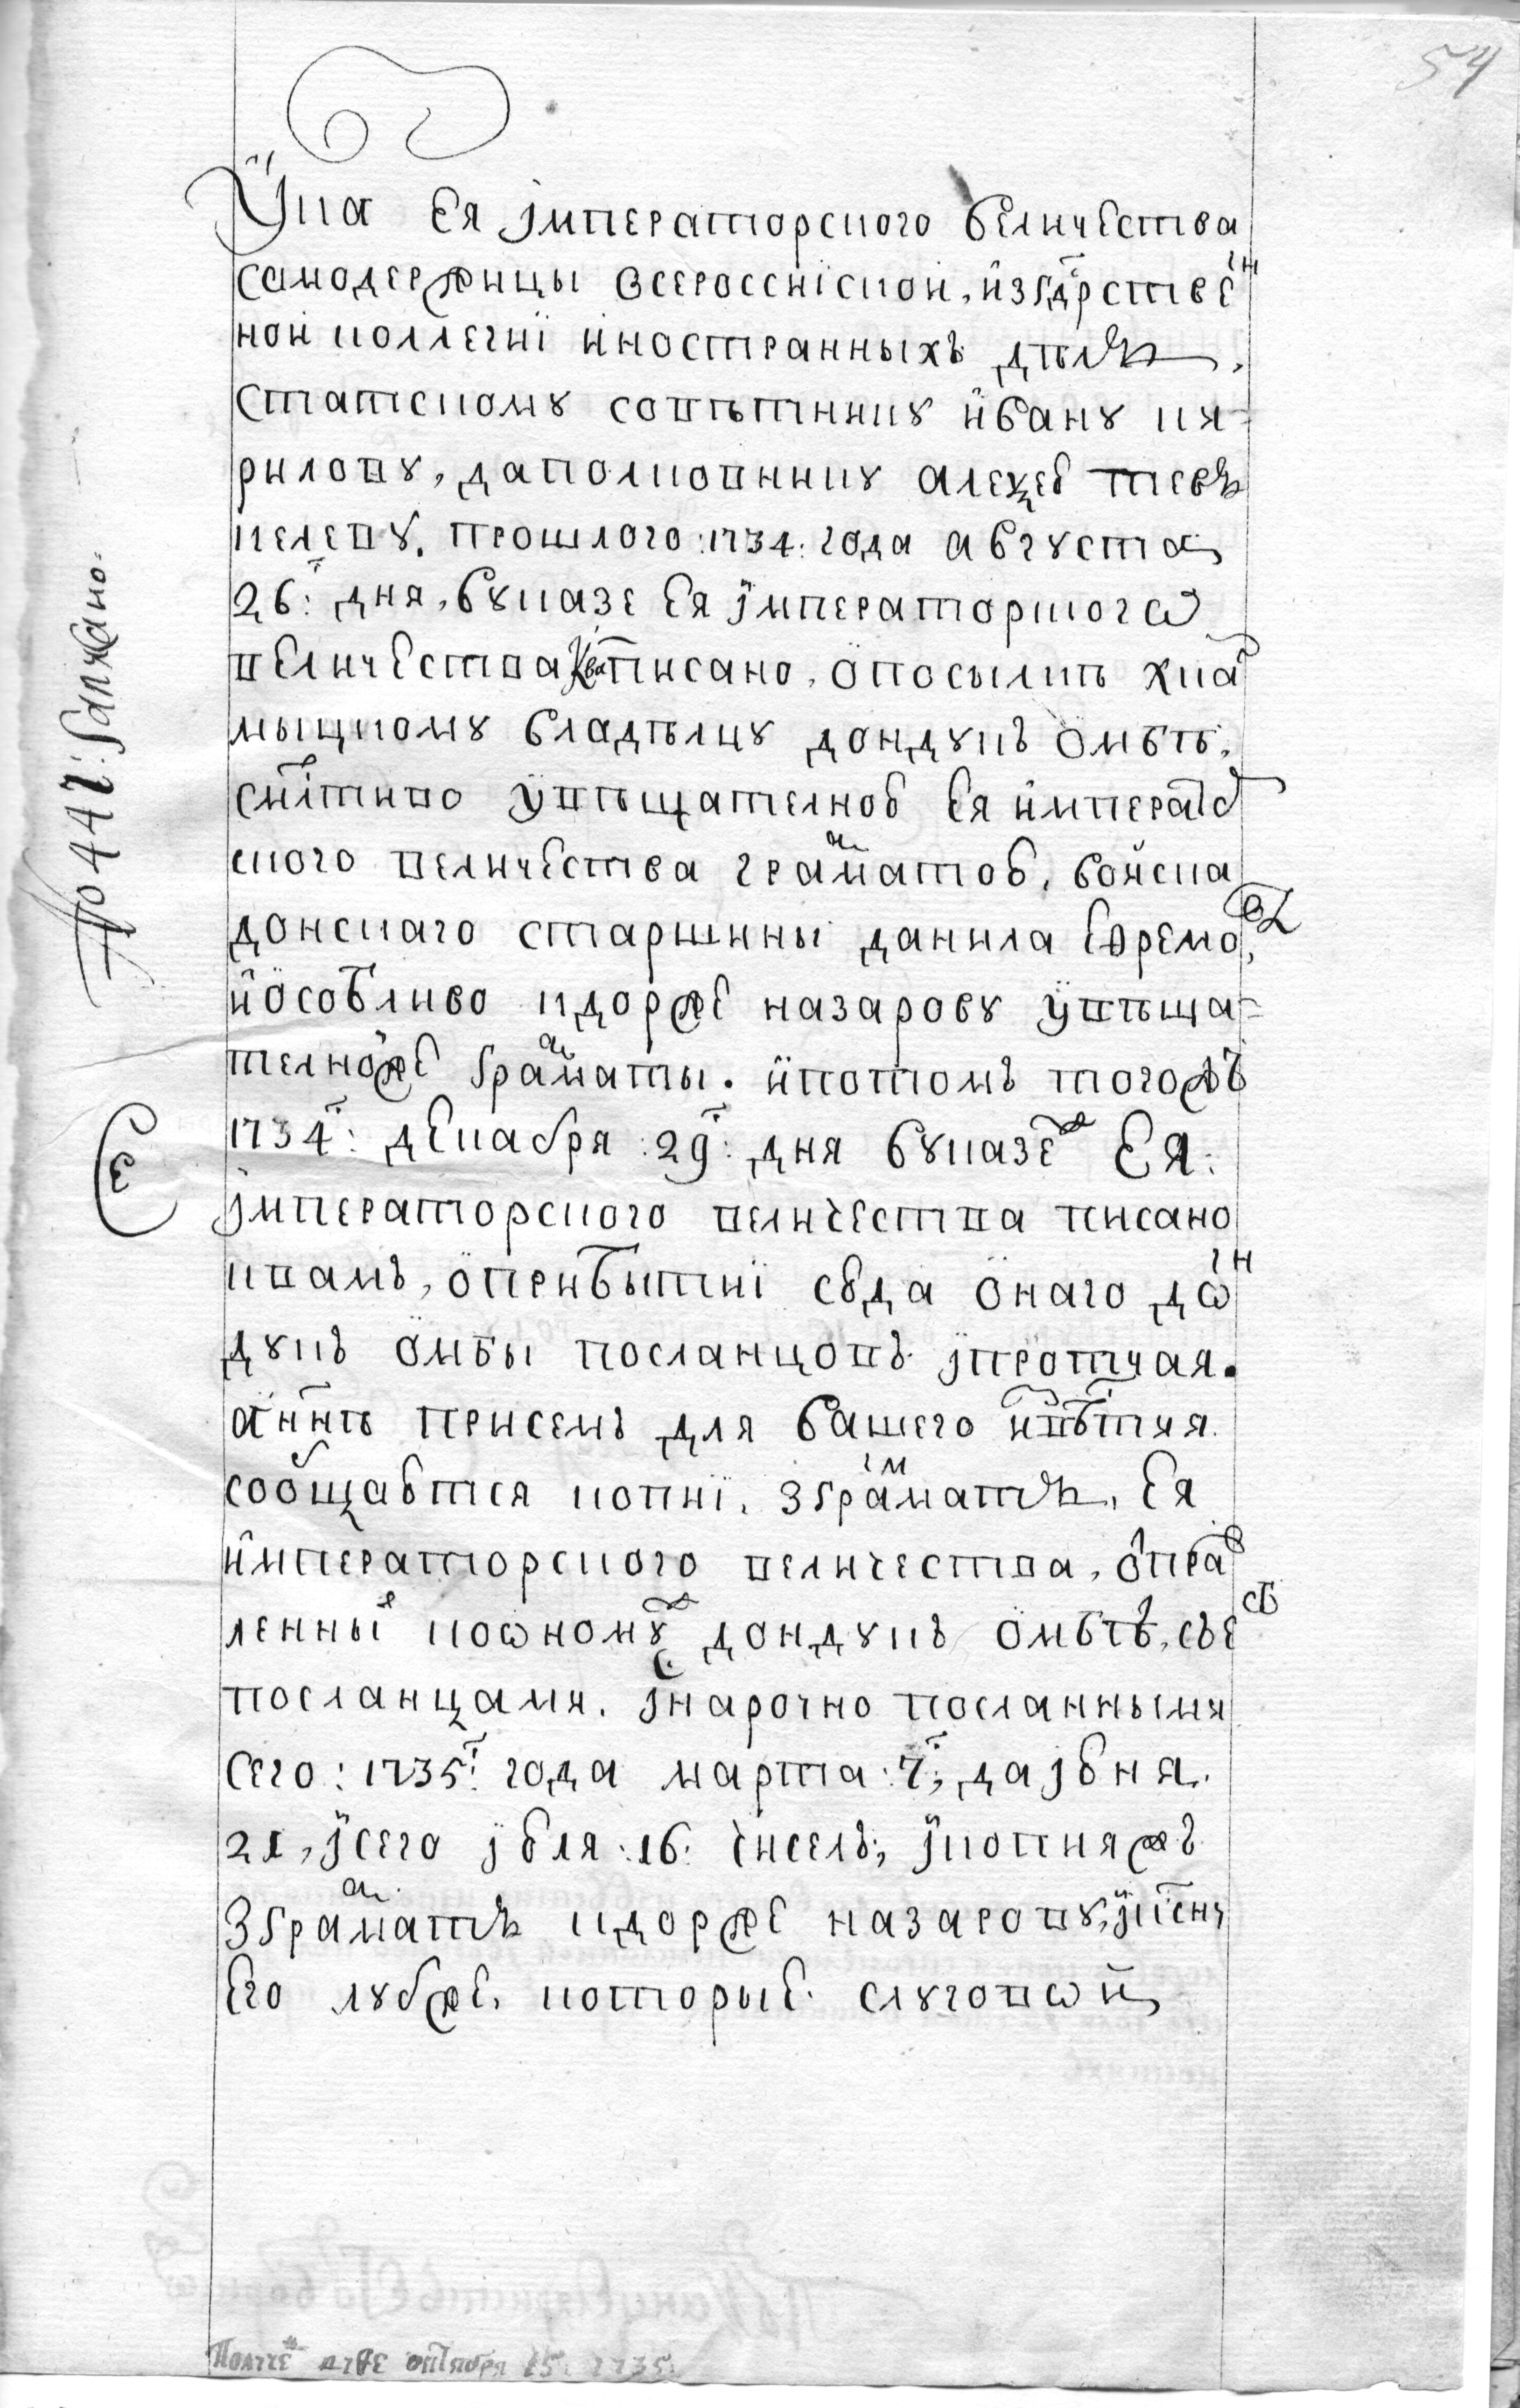 54
Указ Ея Імператорского величества
самодержицы всероссиіскои, изгдрствен
нои коллегиї иностранныхъ делъ,
Статскому советнику ивану ки-
рилову, даполковнику алеѯею тевъ
келеву. прошлого :1734: года августа
26: дня, вуказе Ея імператорского
величества квам писано, опосылке ккал
мыцкому владелцу дондукъ омбе,
смлтиво увещателною Ея император
ского величества граматою, воиска
донскаго старшины данила Ефремова,
иособливо кдорже назарову увеща-
телноиже грамоты. ипотомъ тогожъ
1734: декабря :29: дня вуказе ж Ея:
імператорского величества писано
квамъ, оприбытиї сюда онаго дон
дукъ омбы посланцовъ іпротчая.
аннѣ присемъ для вашего извѣстия
сообщаются копиї. зграматъ, Ея
императорского величества, отправ
ленных кономуж дондукъ омбѣ, съег
посланцами. інарочно посланными
Сего: 1735: года марта :7; да июня
21, ісего июля :16: чиселъ; ікопияжъ
Зграматъ кдорже назарову, іксну
Его лубже, которые слуговои
№ 447: записано.
Е
Получе въ уфе октября 15: 1735: